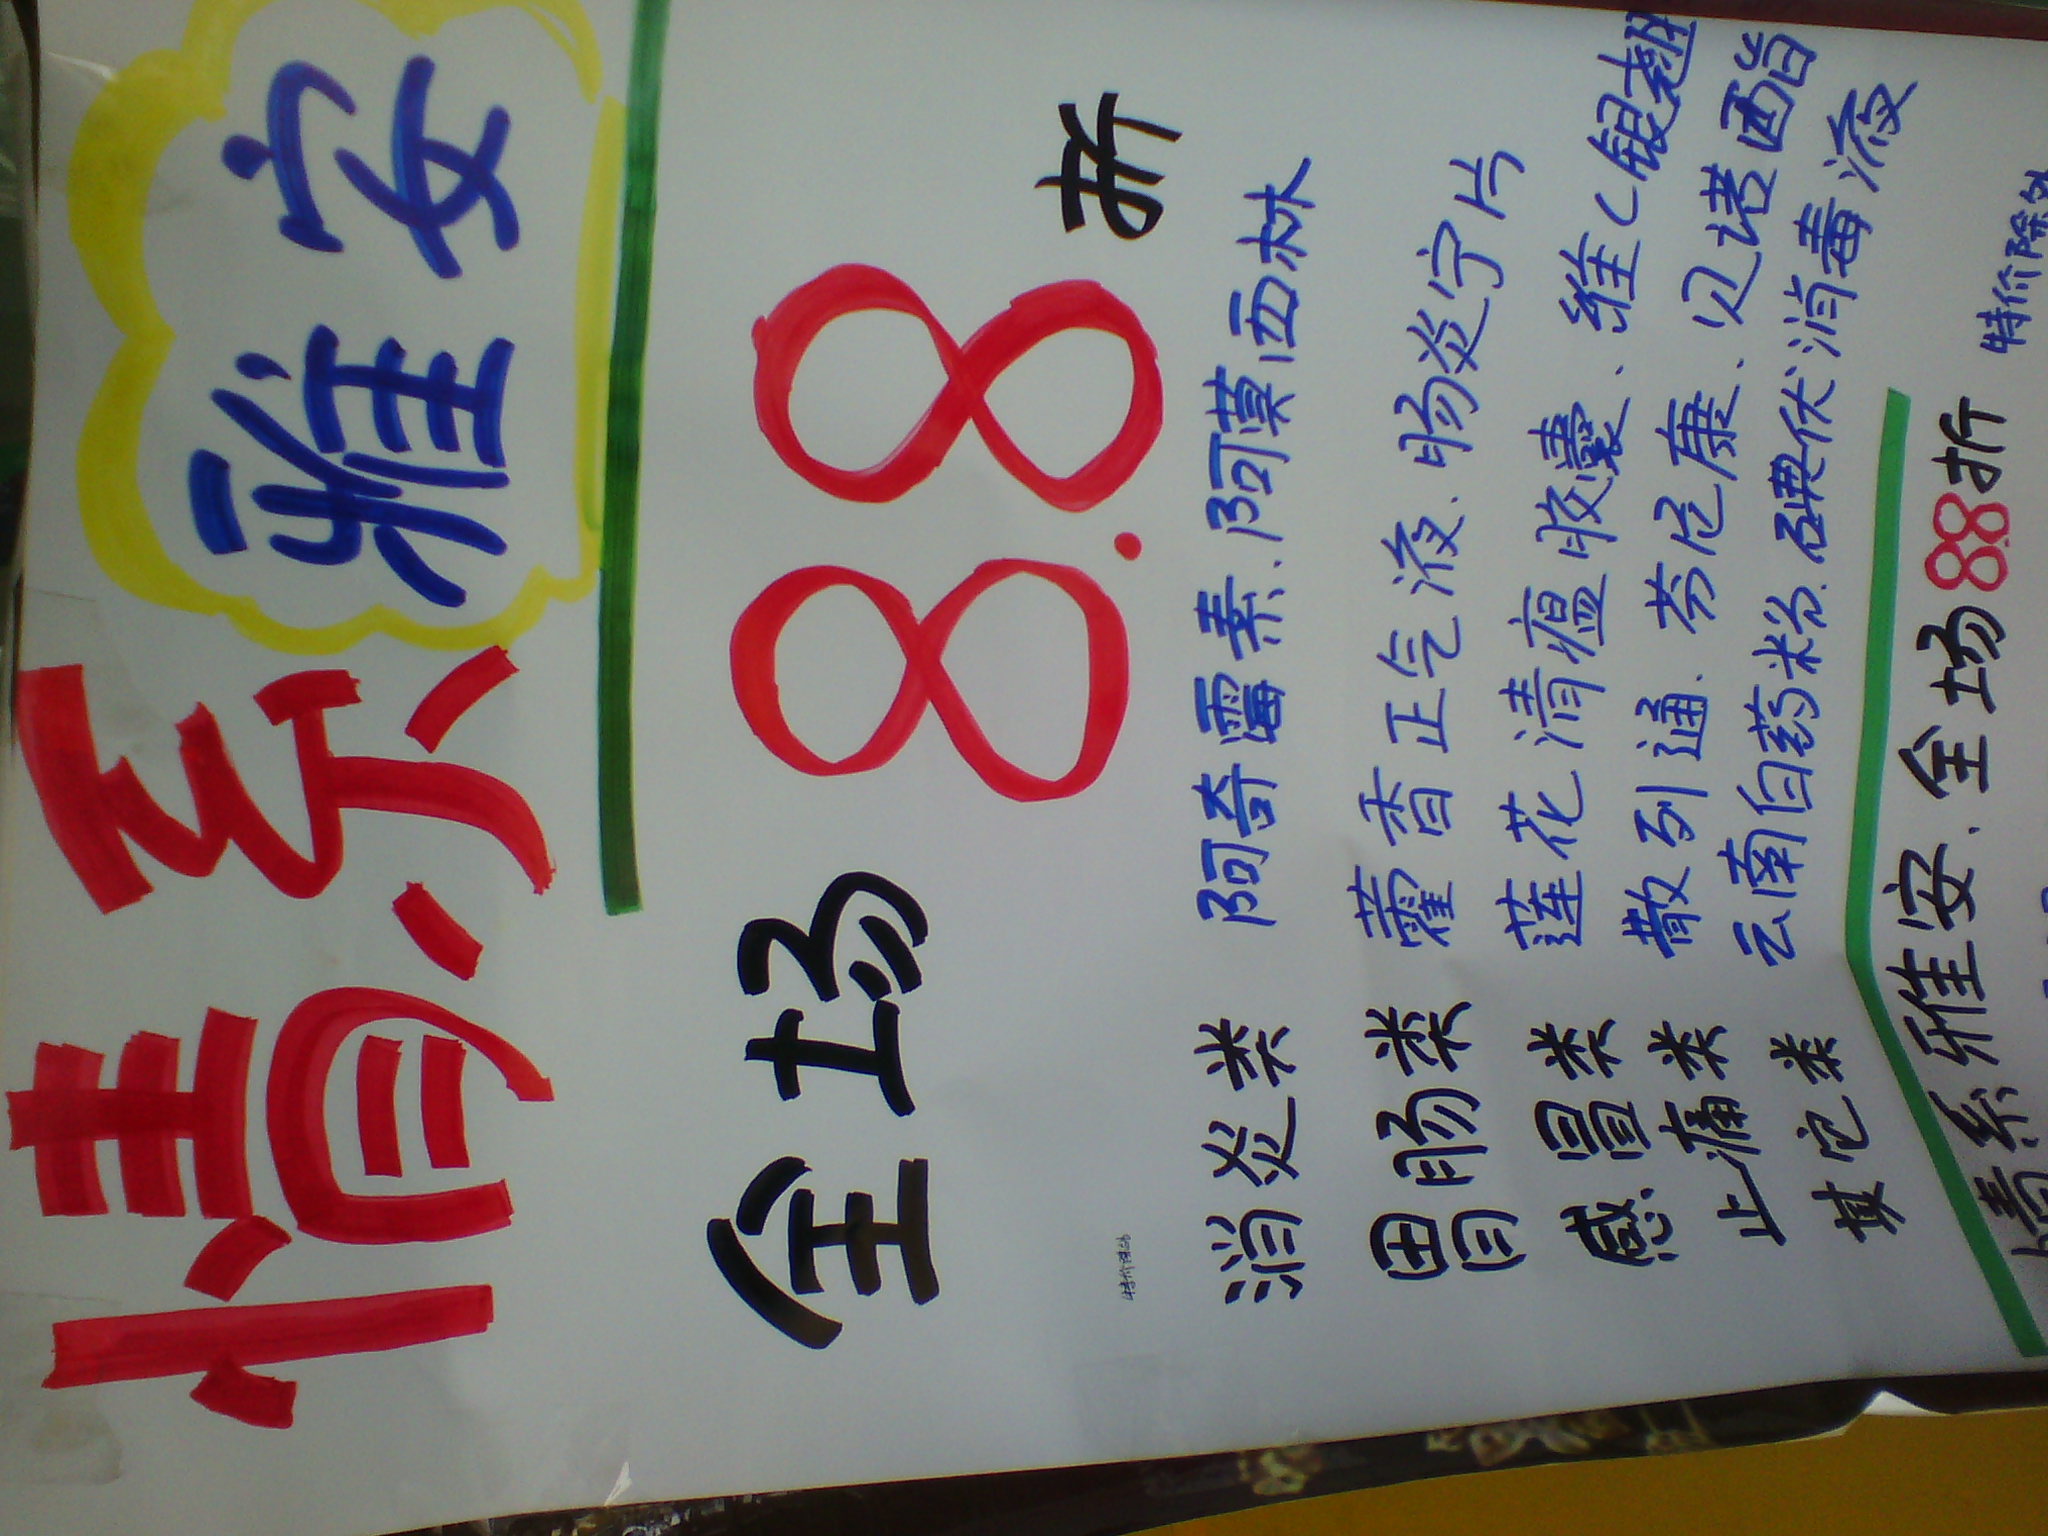 情系雅安
全场88.折
特价除外
消炎类 阿奇霉素.阿莫西林
胃肠类 藿香正气液.肠炎宁片
感冒类 莲花清瘟胶囊、维C银翘
止痛类 散列通、芬必康、贝诺酯
其它类 云南白药粉.碘伏消毒液
情系雅安.全场88折 特价除外